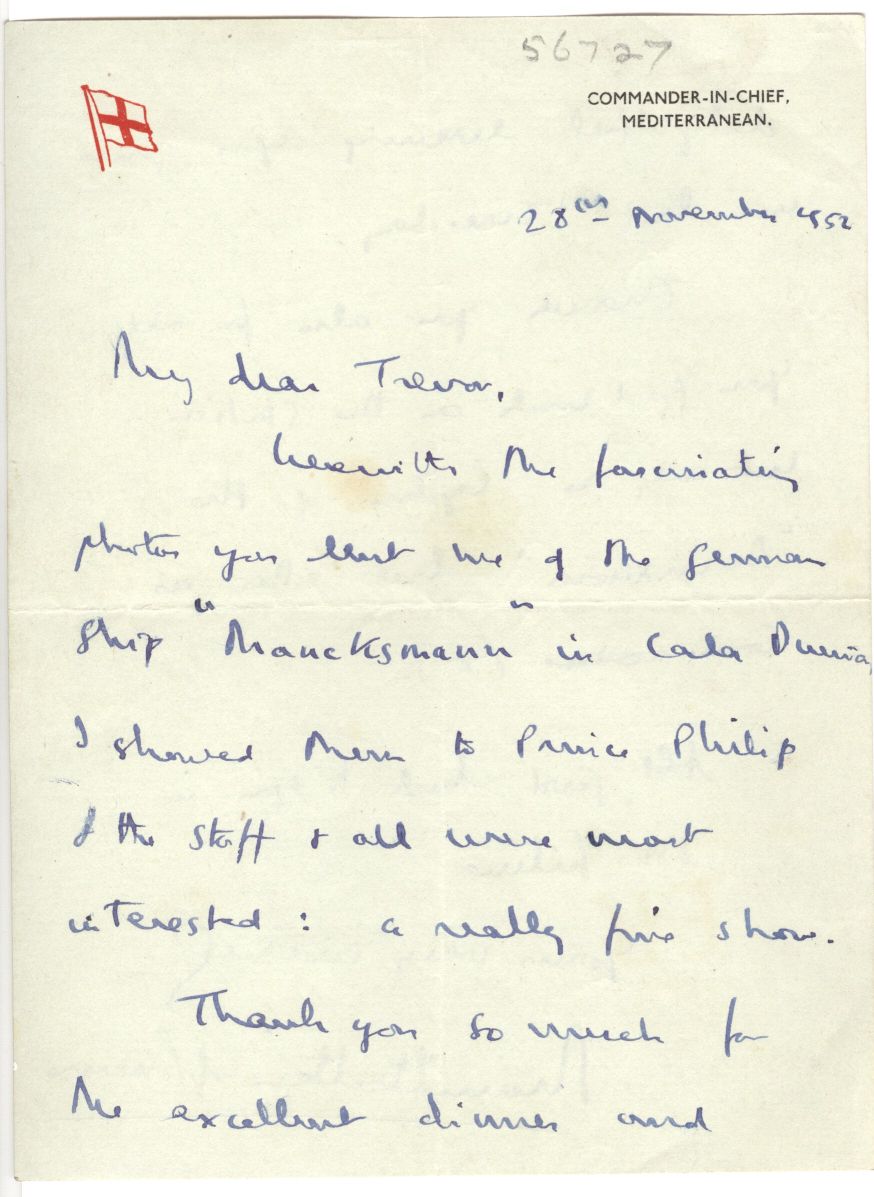 56727
COMMANDER-IN-CHIEF,
MEDITERRANEAN.
28th November 1952
My dear Trevor,
herewith the fascinating
photos you lent me of the German
ship "Maucksmann" in Cala
I showed them to Prince Philip
& the staff & all were most
interested : a really fine show.
Thank you so much for
the excellent dinner and